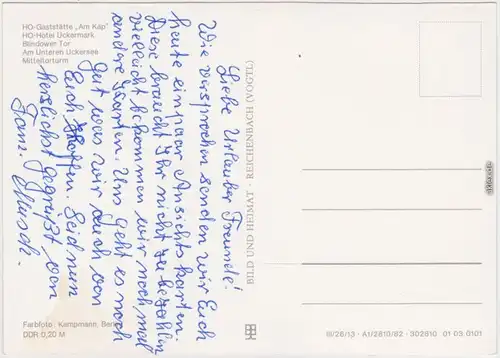 HO-Gaststätte „Am Kap"
HO-Hotel Uckermark
Blindower Tor
Am Unteren Uckersee
Mitteltorturm
Liebe Urlauber Freunde!
Wie versprochen senden wir Euch
heute ein paar Ansichtskarten.
Diese braucht Ihr nicht zu bezahlen
vielleicht bekommen wir noch mal
andere Karten. Uns geht es noch
gut was wir auch von
Euch hoffen. Seid nun
herzlichst gegrüßt von
Fam.
BILD UND HEIMAT · REICHENBACH (VOGTL)
Farbfoto: Kampmann, Berlin
DDR 0,20 M
III/26/13 · A1/2810/82 · 302810 01 03 0101